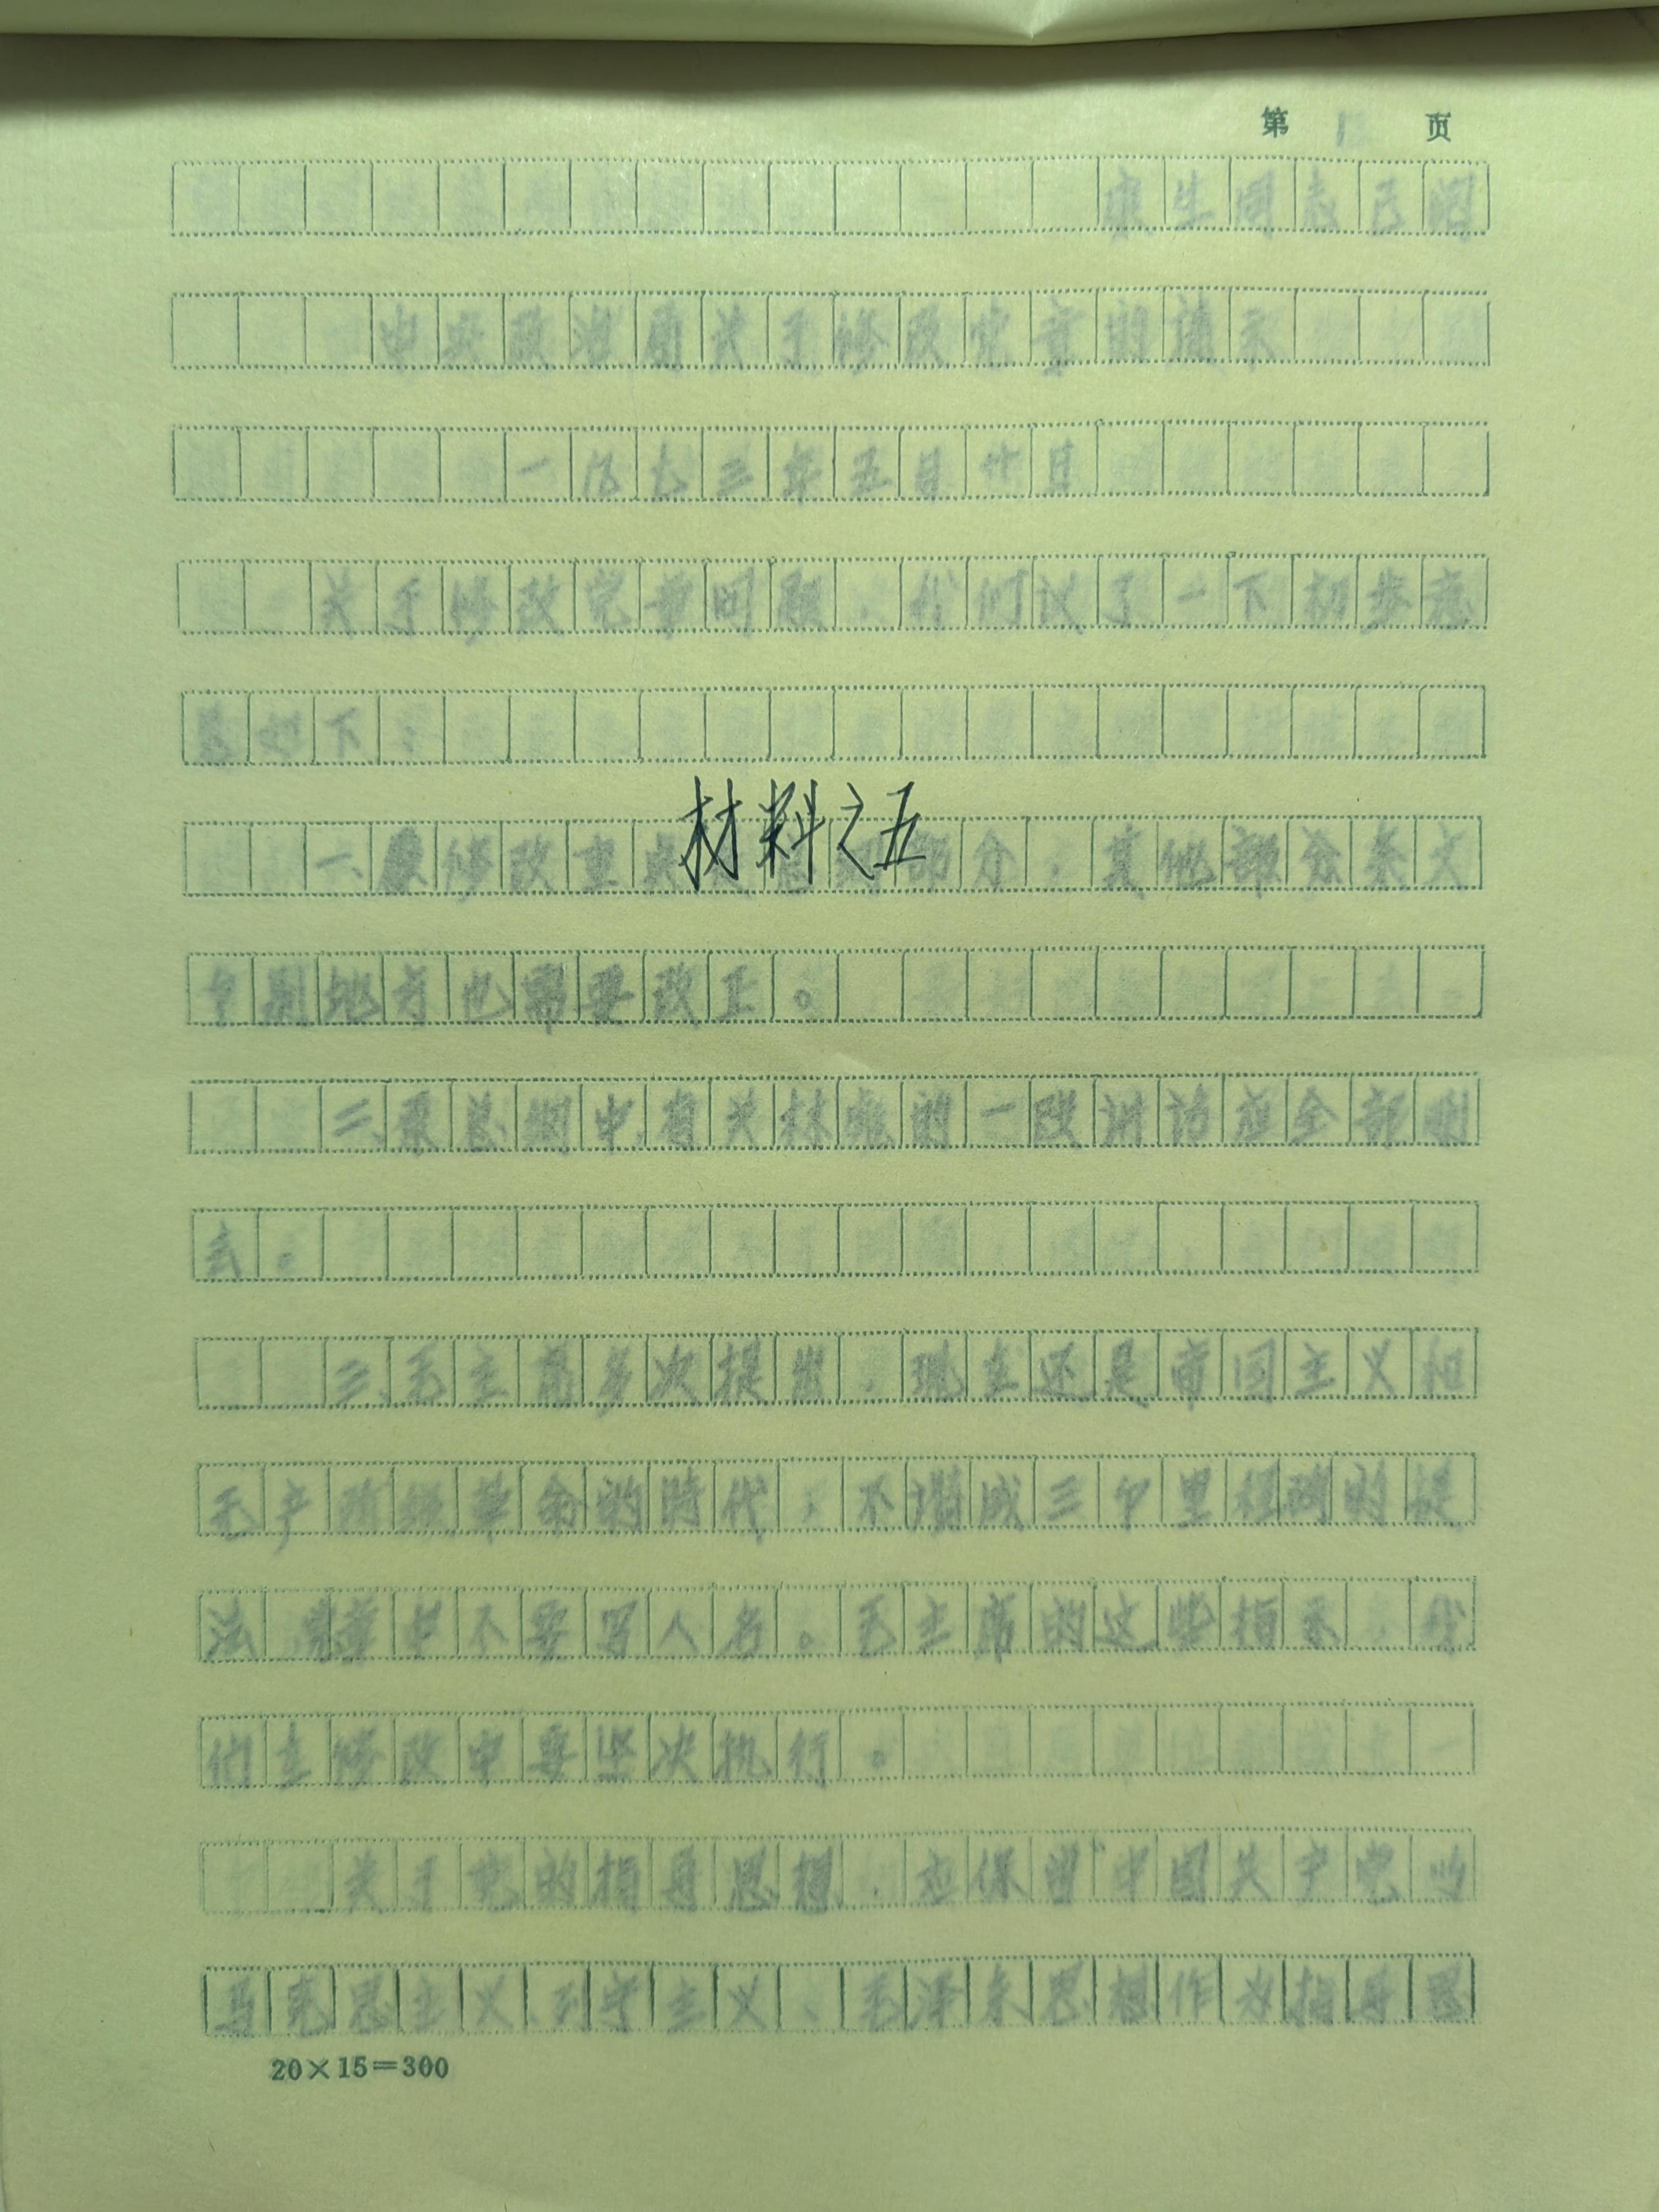 第 1 页
康生同志已阅
中央政治局关于修改党章的请示
一九七三年五月廿日
关于修改党章问题，我们议了一下初步意
见如下：
材料之五
一、修改重点部分，其他部分条文
个别地方也需要改正。
二、原总纲中有关林彪的一段讲话应全部删
去。
三、毛主席多次提出，现在还是帝国主义和
无产阶级革命的时代；不赞成三个里程碑的提
法，党章中不要写人名。毛主席的这些指示，我
们在修改中要坚决执行。
关于党的指导思想，应保留“中国共产党以
马克思主义、列宁主义、毛泽东思想作为指导思
20×15=300